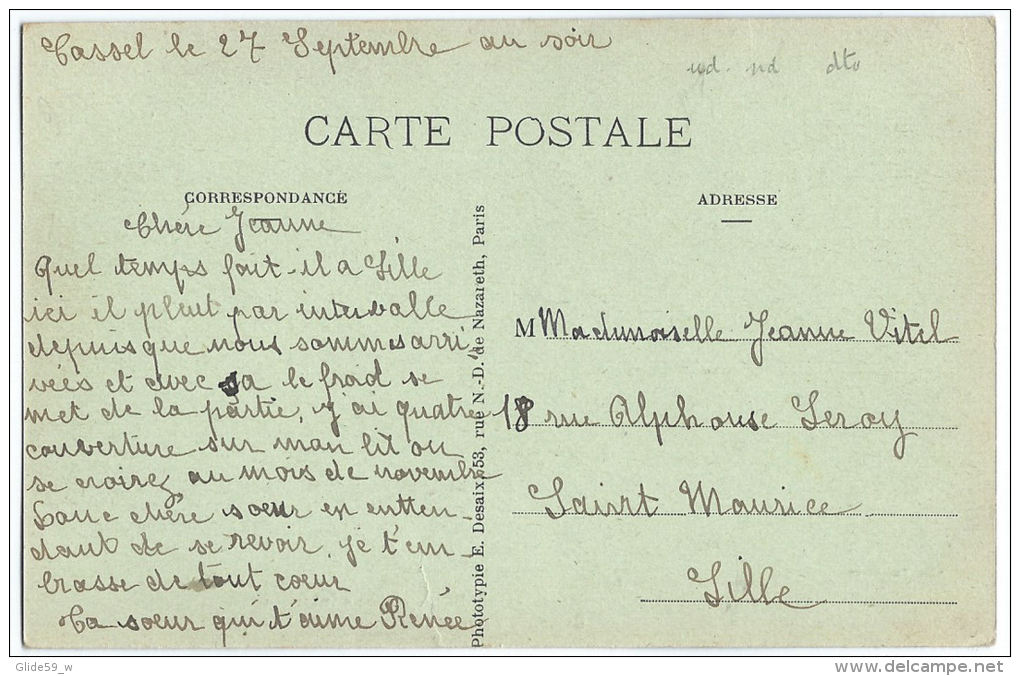 Cassel le 27 Septembre au soir
nd dto
CARTE POSTALE
CORRESPONDANCE
ADRESSE
Chére Jeanne
Quel temps fait-il a Lille
ici il pleut par intervalle
depuis que nous sommes arri-
vées et avec sa le froid se
met de la partie, j'ai quatre
couverture sur mon lit on
se croirez au mois de novembre
Donc chére soeur en entten-
dant de se revoir, je t'em-
brasse de tout coeur
Ta soeur qui t'aime Renée
Phototypie E. Desaix, 53, rue N.-D. de Nazareth, Paris
M Mademoiselle Jeanne Vitel
18 rue Alphonse Leroy
Saint Maurice
Lille
Glide59_w
www.delcampe.net